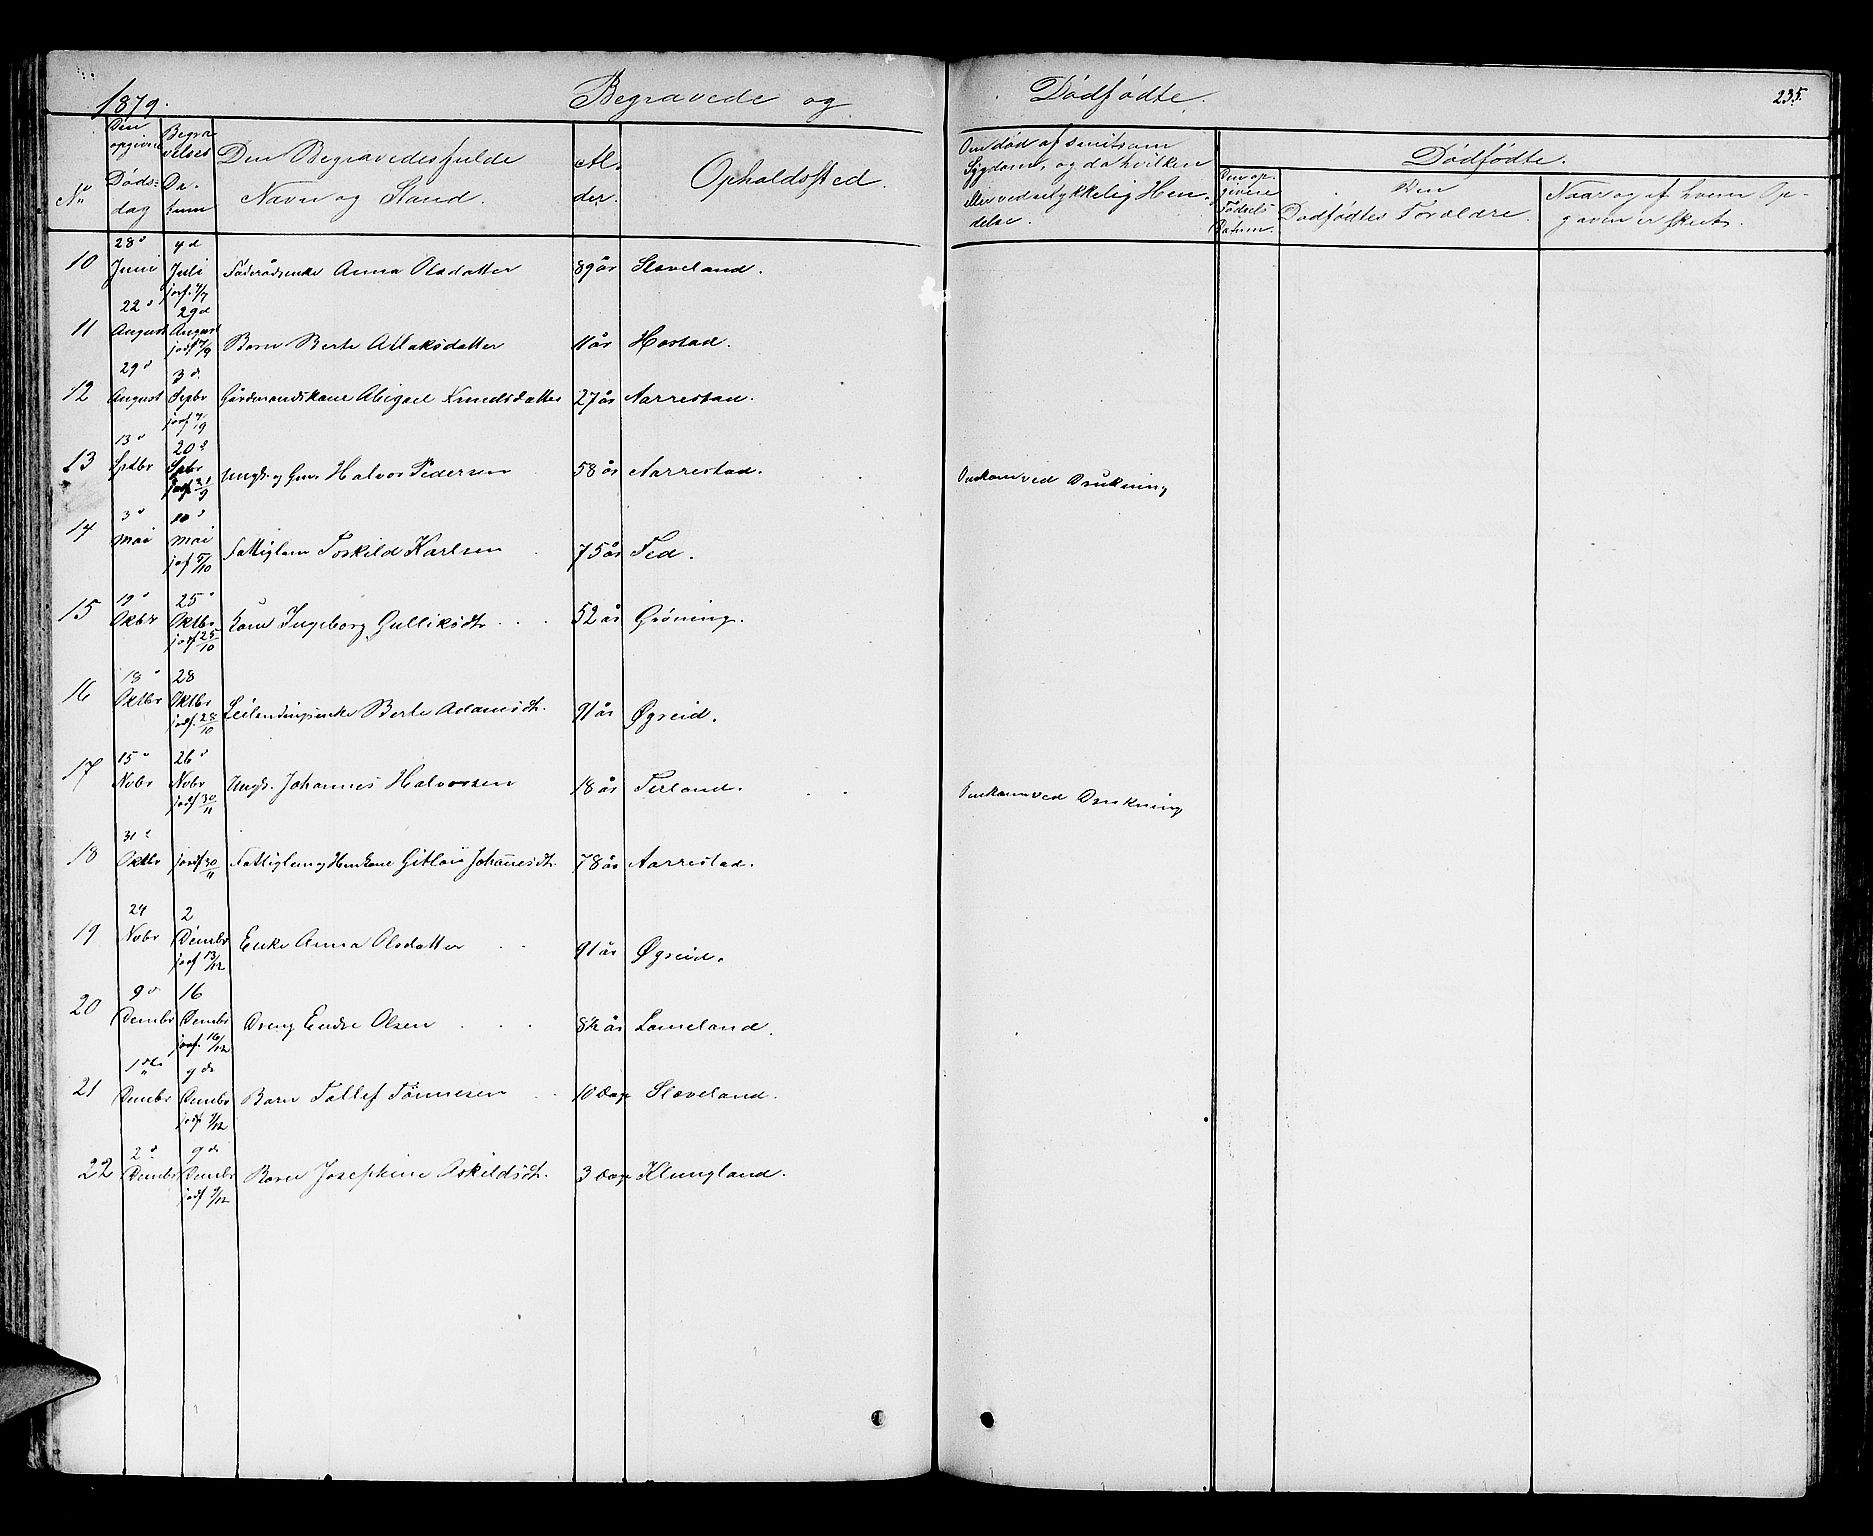 1879. Begravede og Dødfødte. 235.
No
Den opgivne Dødsdag
Begravelses Datum
Den Begravedes fulde Navn og Stand.
Alder.
Opholdssted.
Om død af smitsom Sygdom, og da hvilken eller ved ulykkelig Hændelse.
Dødfødte.
Den opgivne Fødsels Datum.
Den Dødfødtes Forældre.
Naar og af hvem Opgaven er skeet.
10 28d Juni 4d Juli jorf. 4/7 Føderådsenke Anna Olsdatter 89 år Slæveland.
11 22d August 29d August jordf 17/9 Barn Berte Atlaksdatter 11 år Hæstad.
12 29d August 3d Sepbr jorf 7/9 Gårdmandskone Abigael Knudsdatter 27 år Aarrestad.
13 13d Sptbr 20d Spbr jorf 21/9 Ungk. og Gmr Halvor Pedersen 58 år Aarrestad. Omkom ved Drukning
14 3d Mai 10d Mai jof 5/10 Fattiglem Torkild Karlsen 75 år Fed.
15 19d Okbr 25d Oktbr jorf 25/10 Kone Ingeborg Gulliksdtr 52 år Grøning.
16 18d Oktbr 28 Oktbr jordf. 28/10 Leilendingsenke Berte Adamsdtr. 91 år Øgreid.
17 15d Nvbr 26d Nvbr jordf 30/11 Ungk. Johannes Halvorsen 18 år Terland. Omkom ved Drukning
18 31d Oktbr jordf 30/11 Fattiglem og Huskone Gitlaù Johannesdtr. 78 år Aarrestad.
19 24 Nvbr 2 Dcmbr jorf 13/12 Enke Anna Olsdatter 91 år Øgreid.
20 9d Dcmbr 16 Dcmbr jorf. 16/12 Dreng Endre Olsen 8½ år Lameland.
21 1ste Dcmbr 9de Dcmbr jorf 9/12 Barn Tallef Tønnesen 10 Dage Slæveland.
22 2d Dcmbr 9de Dcmbr jorf 9/12 Barn Josephine Askildsdtr. 3 Dage Klungland.